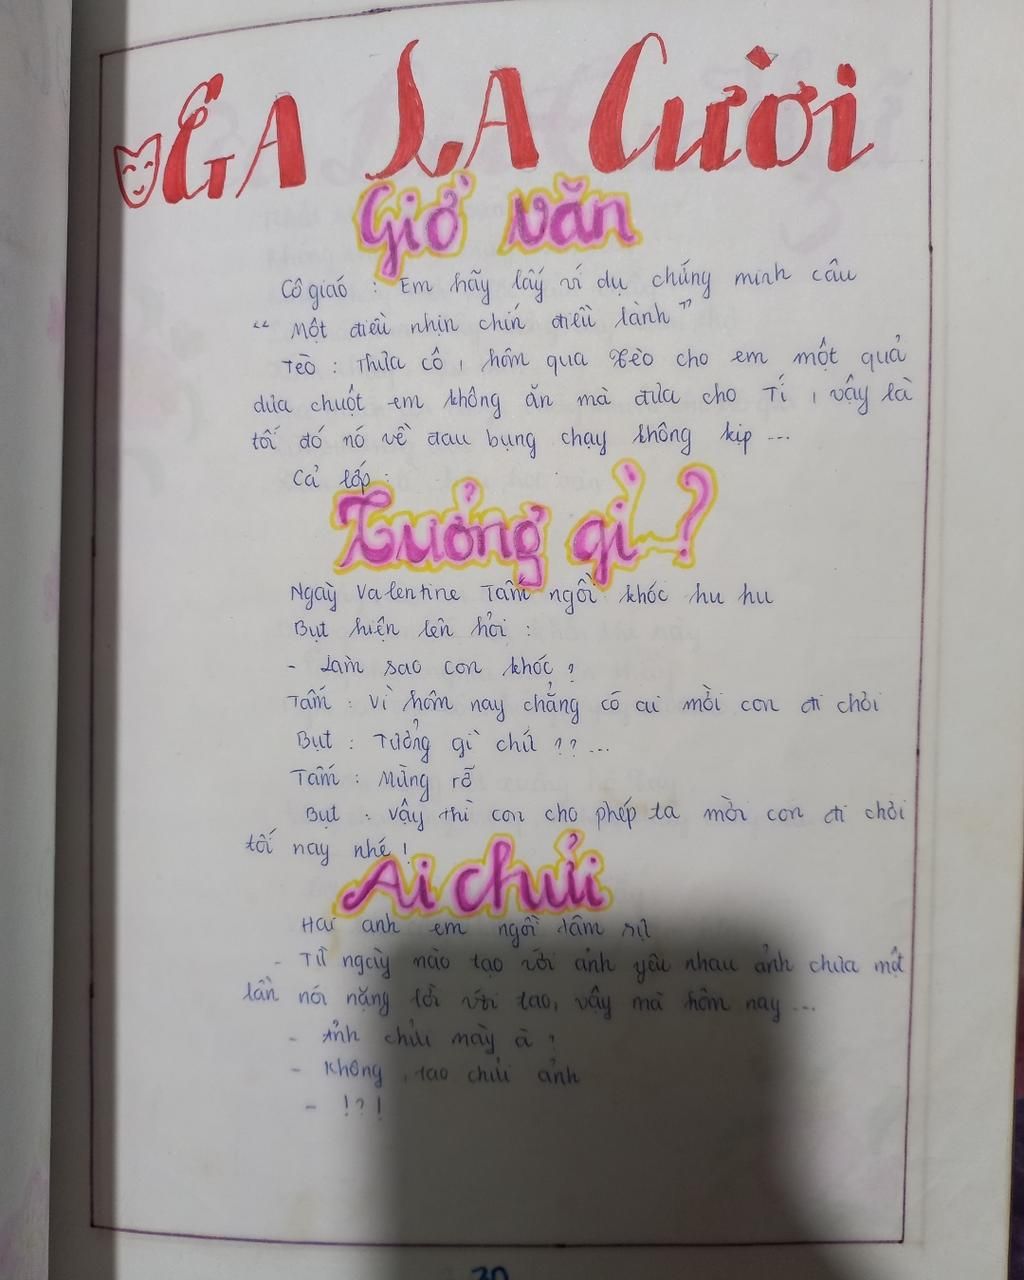 GA LA Cười
Giờ văn
Cô giáo : Em hãy lấy ví dụ chứng minh câu
“ Một điều nhịn chín điều lành ”
Tèo : Thưa cô , hôm qua Xèo cho em một quả
dưa chuột em không ăn mà đưa cho Tí , vậy là
tối đó nó về đau bụng chạy không kịp ...
Cả lớp :
Tưởng gì ... ?
Ngày Valentine Tấm ngồi khóc hu hu
Bụt hiện lên hỏi :
- Làm sao con khóc ?
Tấm : Vì hôm nay chẳng có ai mời con đi chơi
Bụt : Tưởng gì chứ ?? ...
Tấm : Mừng rỡ
Bụt : Vậy thì con cho phép ta mời con đi chơi
tối nay nhé !
Ai chửi
Hai anh em ngồi tâm sự
- Từ ngày nào tao với ảnh yêu nhau ảnh chưa một
lần nói nặng lời với tao, vậy mà hôm nay ...
- Ảnh chửi mày à ?
- Không , tao chửi ảnh
- !?!
30